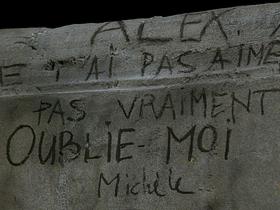 ALEX.
E T'AI PAS AIMÉ
PAS VRAIMENT
OUBLIE-MOI
Michèle